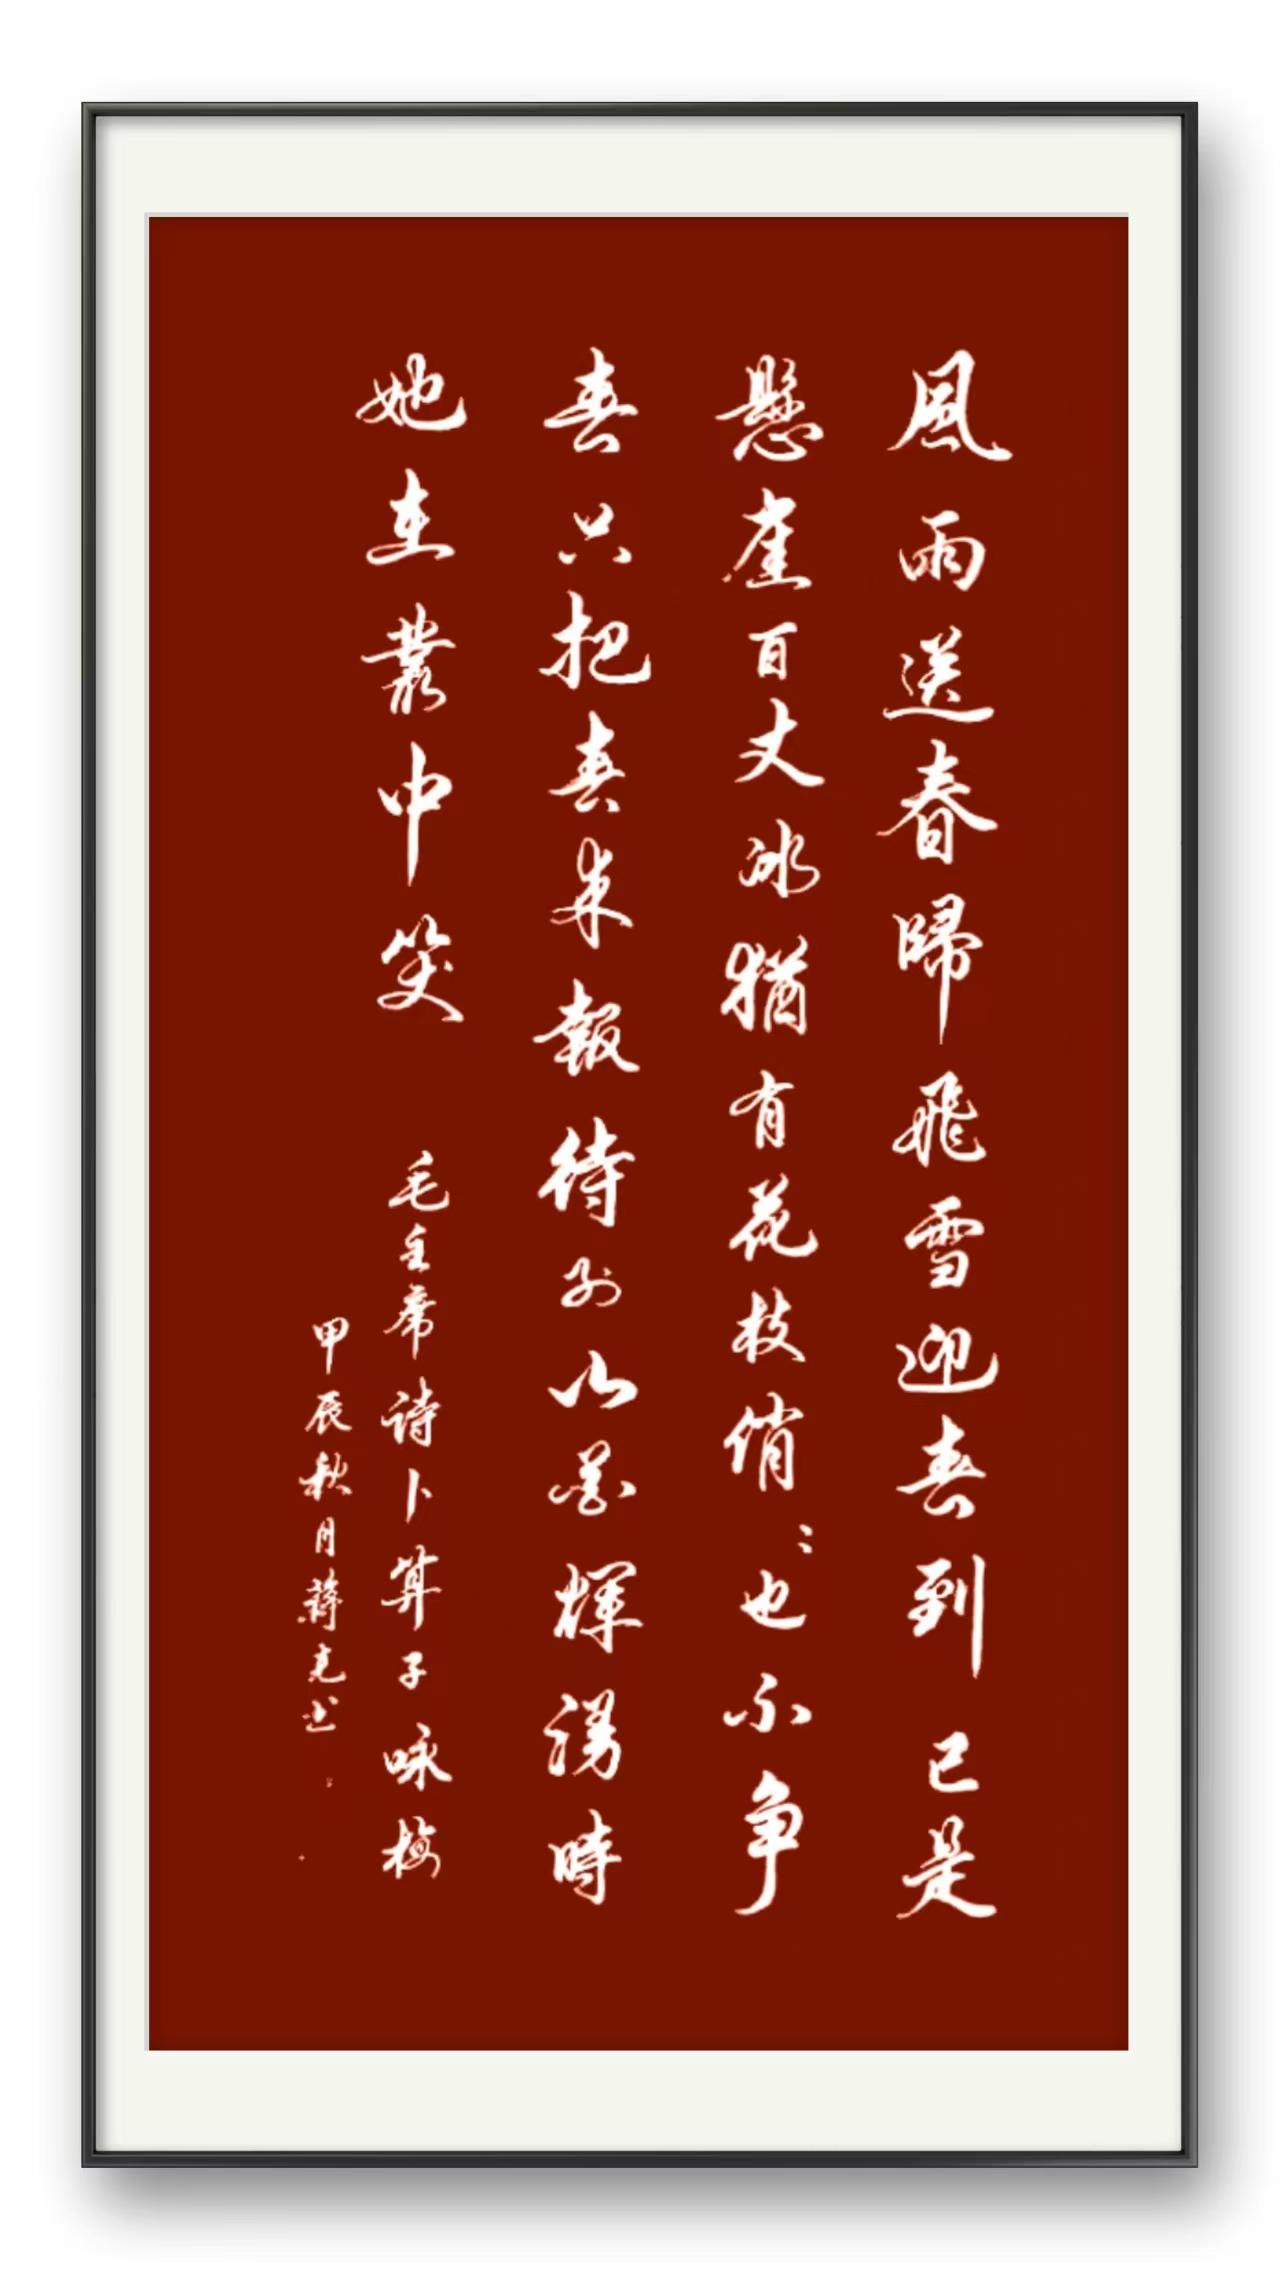 風雨送春歸飛雪迎春到已是
懸崖百丈冰猶有花枝俏〻也不争
春只把春来報待到山花爛漫時
她在叢中笑 毛主席诗卜算子咏梅
甲辰秋月蒋书